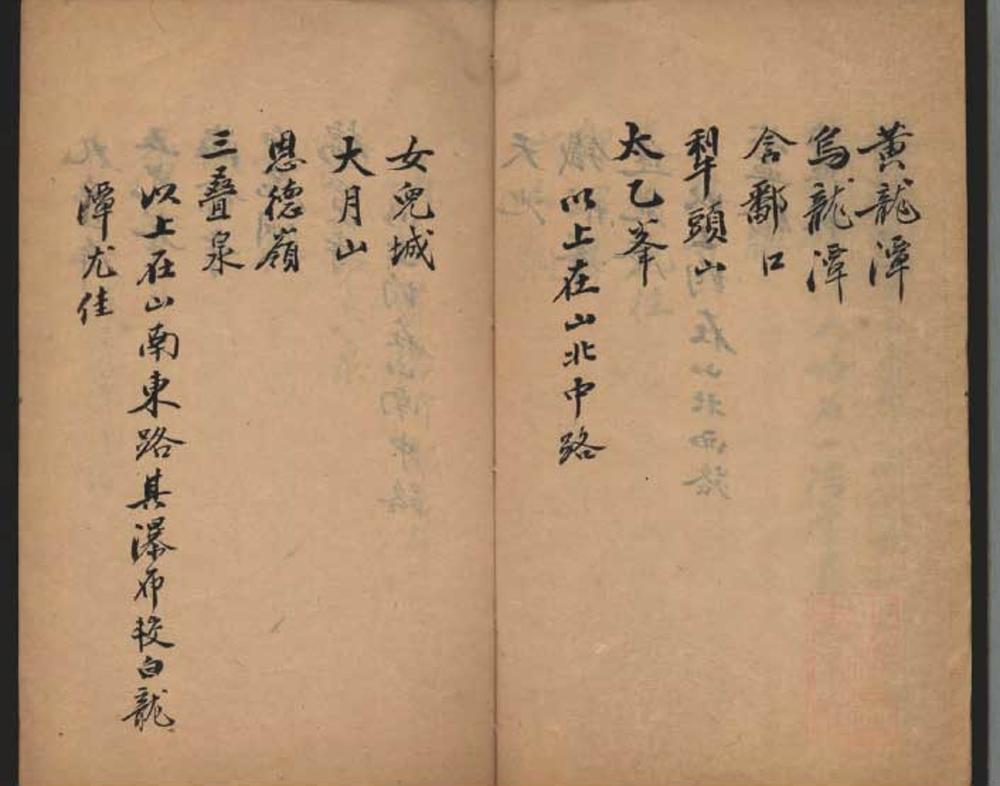 黃龍潭
烏龍潭
含鄱口
犁頭山
太乙峯
以上在山北中路
女兒城
大月山
恩德嶺
三疊泉
以上在山南東路其瀑布較白龍
潭尤佳